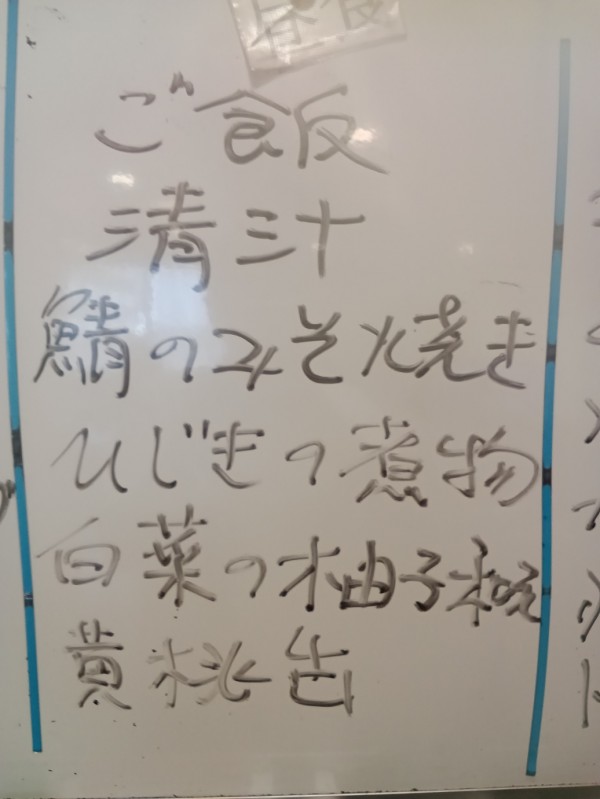 ご飯
清汁
鯖のみそ焼き
ひじきの煮物
白菜の柚子和え
黄桃缶